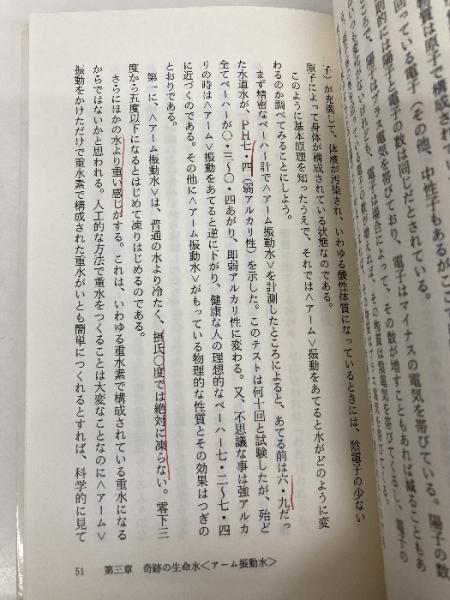 物質は原子で構成されてい
回っている電子、その他、中性子もあるがここ
的には陽子と電子の数は同じだとされている。
ろで、陽子はプラス電気を帯びており、電子はマイナスの電気を帯びている。陽子の数
電子は場合によって、その数が増すこともあれば減ることもあ
その物質は陰電気を帯びてくるし、電子の
子)が充満して、体液が汚染され、いわゆる酸性体質になっているときには、陰電子の少ない
原子によって身体が構成されている状態なのである。
このように基本原理を知ったうえで、それでは〈アーム〉振動をあてると水がどのように変
わるのか調べてみることにしよう。
まず精密なペーハー計で〈アーム振動水〉を計測したところによると、あてる前は六・九だっ
た水道水が、PH七・四(弱アルカリ性)を示した。このテストは何十回と試験したが、殆ど
全てペーハーが〇・三～〇・四あがり、即弱アルカリ性に変わる。又、不思議な事は強アルカ
リの時は〈アーム〉振動をあてると逆に下がり、健康な人の理想的なペーハー七・二～七・四
に近づくのである。その他に〈アーム振動水〉がもっている物理的な性質とその効果はつぎの
とおりである。
第一に、〈アーム振動水〉は、普通の水より冷たく、摂氏〇度では絶対に凍らない。零下三
度から五度以下になるとはじめて凍りはじめるのである。
さらにほかの水より重い感じがする。これは、いわゆる重水素で構成されている重水になる
からではないかと思われる。人工的な方法で重水をつくることは大変なことなのに〈アーム〉
振動をかけただけで重水素で構成された重水がいとも簡単につくれるとすれば、科学的に見て
51　第三章　奇跡の生命水〈アーム振動水〉